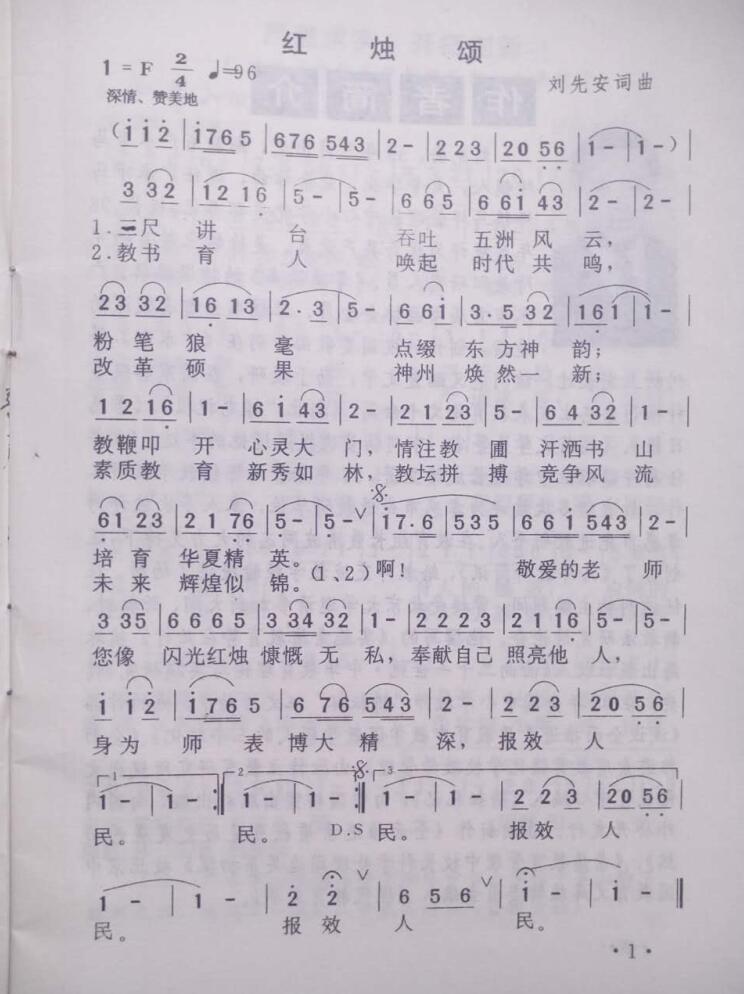 红烛颂
1=F 2/4 ♩=96
刘先安词曲
深情、赞美地
(i i 2̇ | i 7 6 5 | 6 7 6 5 4 3 | 2 - | 2 2 3 | 2 0 5 6 | 1 - | 1 - )|
3 3 2 | 1 2 1 6 | 5 - | 5 - | 6 6 5 | 6 6 i 4 3 | 2 - | 2 - |
1.三尺 讲 台 吞吐 五洲 风 云,
2.教书 育 人 唤起 时代 共 鸣,
2 3 3 2 | 1 6 1 3 | 2 · 3 | 5 - | 6 6 i | 3 · 5 3 2 | 1 6 1 | 1 - |
粉 笔 狼 毫 点缀 东 方神 韵;
改 革 硕 果 神州 焕然 一 新;
1 2 1 6 | 1 - | 6 i 4 3 | 2 - | 2 1 2 3 | 5 - | 6 4 3 2 | 1 - |
教鞭叩 开 心灵大 门,情注教 圃 汗洒书 山
素质教 育 新秀如 林,教坛拼 搏 竞争风 流
6 1 2 3 | 2 1 7 6 | 5 - | 5 - ∨ | i 7 · 6 | 5 3 5 | 6 6 i 5 4 3 | 2 - |
培 育 华夏精 英。
未 来 辉煌似 锦。(1、2)啊! 敬爱的老 师
3 3 5 | 6 6 6 5 | 3 3 4 3 2 | 1 - | 2 2 3 | 7 6 7 2 | 2 1 6 | 5 - |
您像 闪光红烛 慷慨 无 私,奉献自己 照亮他 人,
i i 2̇ | i 7 6 5 | 6 7 6 5 | 4 3 | 2 - | 2 2 3 | 2 0 5 6 |
身为 师 表 博大 精 深,报效 人
1 - | 1 - :| 1 - | 1 - :| 1 - | 1 - | 2 2 3 | 2 0 5 6 |
民。 民。 D.S 民。 报效 人
1 - | 1 - | 2̇ · 2̇ | 6 5 6 ∨ | i - | i - ‖
民。 报效 人 民。
·1·